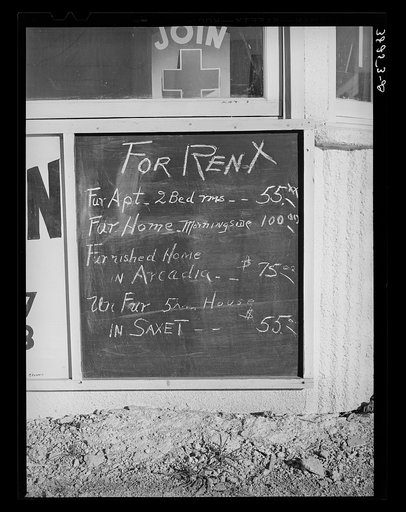 JOIN
FOR RENT
Fur Apt. 2 Bed rms -- 55.xx
Fur Home - Morningside 100 00
Furnished Home
IN Arcadia -- $75.00
Un Fur 5 rm House
IN SAXET -- $55.0
N
7
8